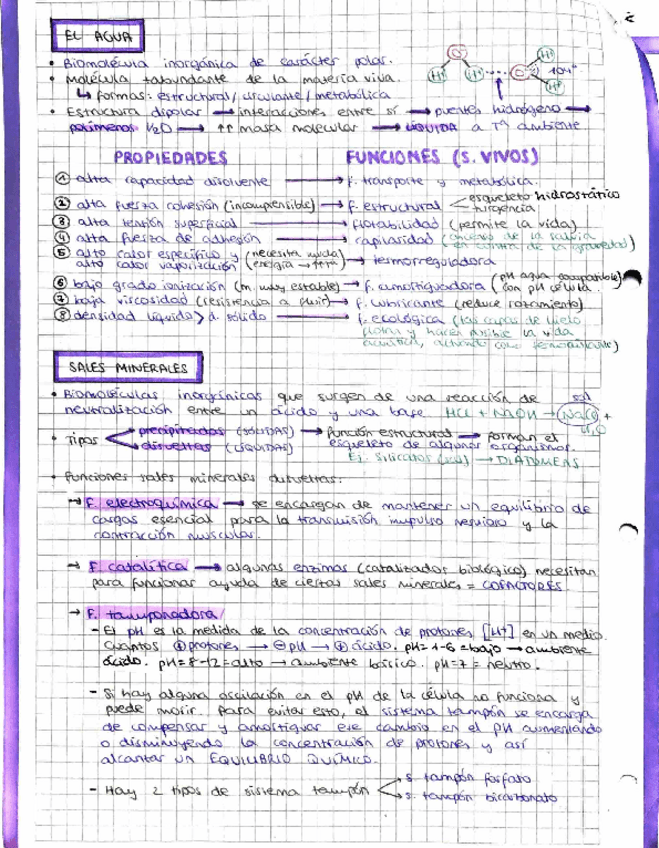 EL AGUA
• Biomolécula inorgánica de carácter polar.
• Molécula + abundante de la materia viva.
↳ formas: estructural / circulante / metabólica
• Estructura dipolar → interacciones entre sí → puentes hidrógeno →
polímeros H2O → ↑↑ masa molecular → LÍQUIDA a Tª ambiente
O⁻ H⁺ H⁺ O⁻ H⁺ H⁺ 104º
PROPIEDADES FUNCIONES (S. VIVOS)
① alta capacidad disolvente → f. transporte y metabólica.
② alta fuerza cohesión (incompresible) → f. estructural < esqueleto hidrostático
turgencia
③ alta tensión superficial → flotabilidad (permite la vida)
④ alta fuerza de adhesión → capilaridad (ascenso de la savia
en contra de la gravedad)
⑤ alto calor específico y (necesita mucha
alto calor vaporización energía → frim) → termorreguladora
⑥ bajo grado ionización (m. muy estable) → f. amortiguadora (pH agua compatible
con pH célula)
⑦ baja viscosidad (resistencia a fluir) → f. lubricante (reduce rozamiento)
⑧ densidad líquido > d. sólido → f. ecológica (las capas de hielo
flotan y hacen posible la vida
acuática, actuando como termoaislante)
SALES MINERALES
• Biomoléculas inorgánicas que surgen de una reacción de
neutralización entre un ácido y una base HCl + NaOH → NaCl +
sal
H2O
• Tipos < precipitadas (SÓLIDAS) → función estructural → forman el
disueltas (LÍQUIDAS) esqueleto de algunos organismos.
Ej. silicatos → DIATOMEAS
• Funciones sales minerales disueltas:
→ F. electroquímica → se encargan de mantener un equilibrio de
cargas esencial para la transmisión impulso nervioso y la
contracción muscular.
→ F. catalítica → algunas enzimas (catalizador biológico) necesitan
para funcionar ayuda de ciertas sales minerales = COFACTORES
→ F. tamponadora
- El pH es la medida de la concentración de protones [H+] en un medio.
Cuantos ⊕ protones → ⊖ pH → ⊕ ácido. pH=1-6 = bajo → ambiente
ácido. pH=8-12 = alto → ambiente básico. pH=7 = neutro.
- Si hay alguna oscilación en el pH de la célula no funciona y
puede morir. Para evitar esto, el sistema tampón se encarga
de compensar y amortiguar ese cambio en el pH aumentando
o disminuyendo la concentración de protones y así
alcanzar un EQUILIBRIO QUÍMICO.
- Hay 2 tipos de sistema tampón < s. tampón fosfato
s. tampón bicarbonato